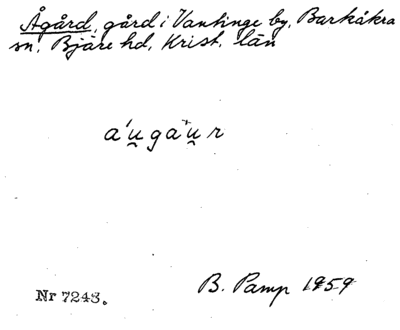 Ågård, gård i Vantinge by, Barkåkra
sn, Bjäre hd, Krist. län
a´u̯ga`u̯r
B. Pamp 1959
Nr 7243.